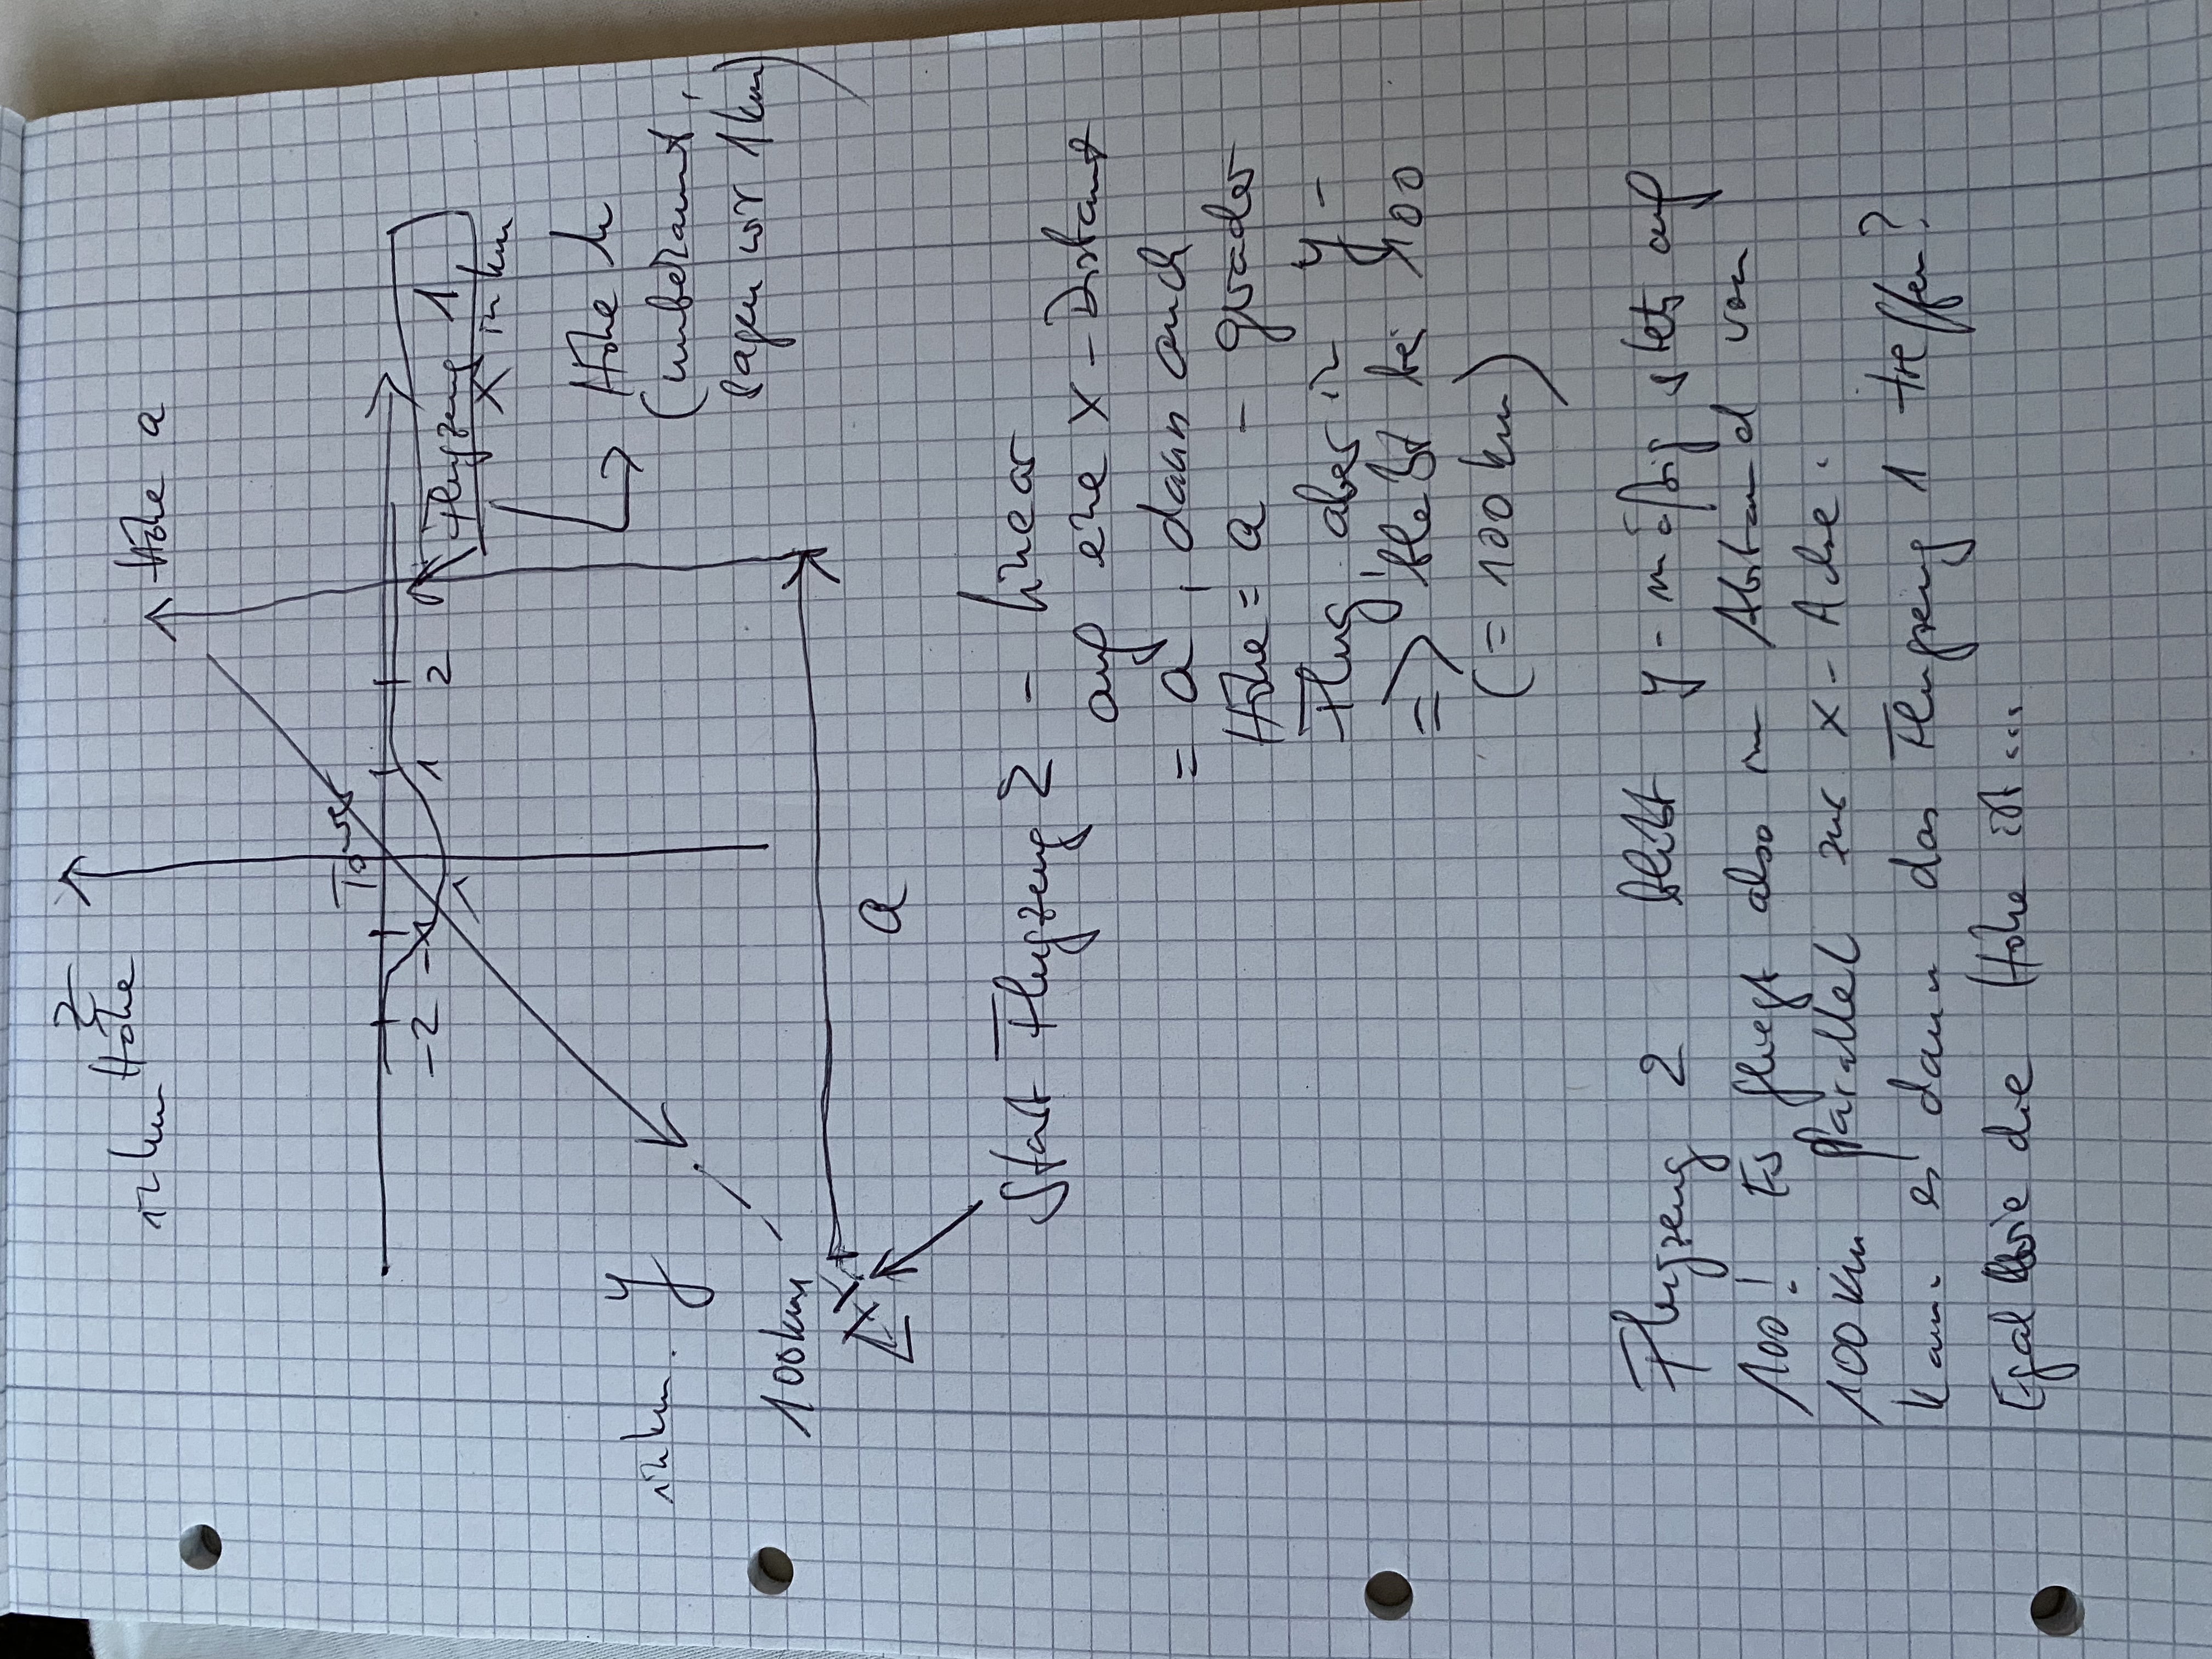 Höhe a
z
Höhe
in km
Tower
-2 -1 1 2
Flugzeug 1
x in km
Höhe h
(unbekannt,
sagen wir 1km)
y
in km
100km
a
Start Flugzeug 2 - linear
auf eine x-Distant
= a, dann auch
Höhe = a - grader
Flug, aber in y-
=> bleibt bei 100
(= 100 km)
Flugzeug 2 bleibt y-mäßig stets auf
100! Es fliegt also im Abstand von
100 km parallel zur x-Achse.
Kann es dann das Flugzeug 1 treffen?
Egal wie die Höhe ist...